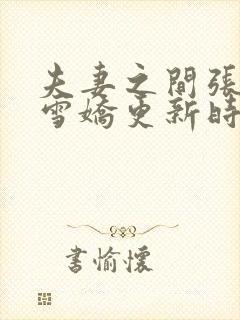 夫妻之間張
雪嬌更新時
書愉懷